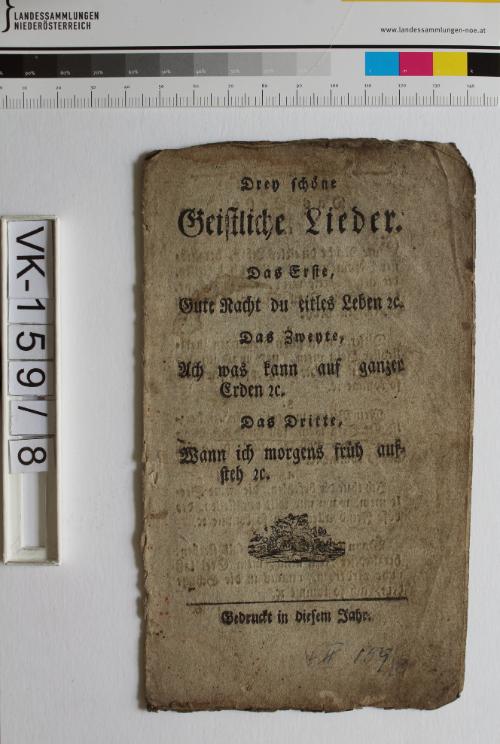 LANDESSAMMLUNGEN
NIEDERÖSTERREICH
www.landessammlungen-noe.at
VK-159/8
Drey schöne
Geistliche Lieder.
Das Erste,
Gute Nacht du eitles Leben ꝛc.
Das Zweyte,
Ach was kann auf ganzer
Erden ꝛc.
Das Dritte,
Wann ich morgens früh auf-
steh ꝛc.
Gedruckt in diesem Jahr.